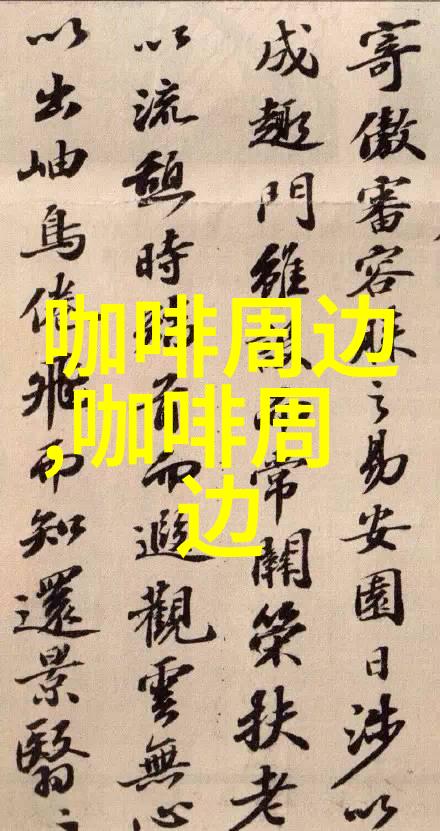 寄傲審容膝之易安園日涉以
成趣門雖設而常關策扶老
以流憩時矯首而遐觀雲無心
以出岫鳥倦飛而知還景翳
咖啡周边
,咖啡周
边